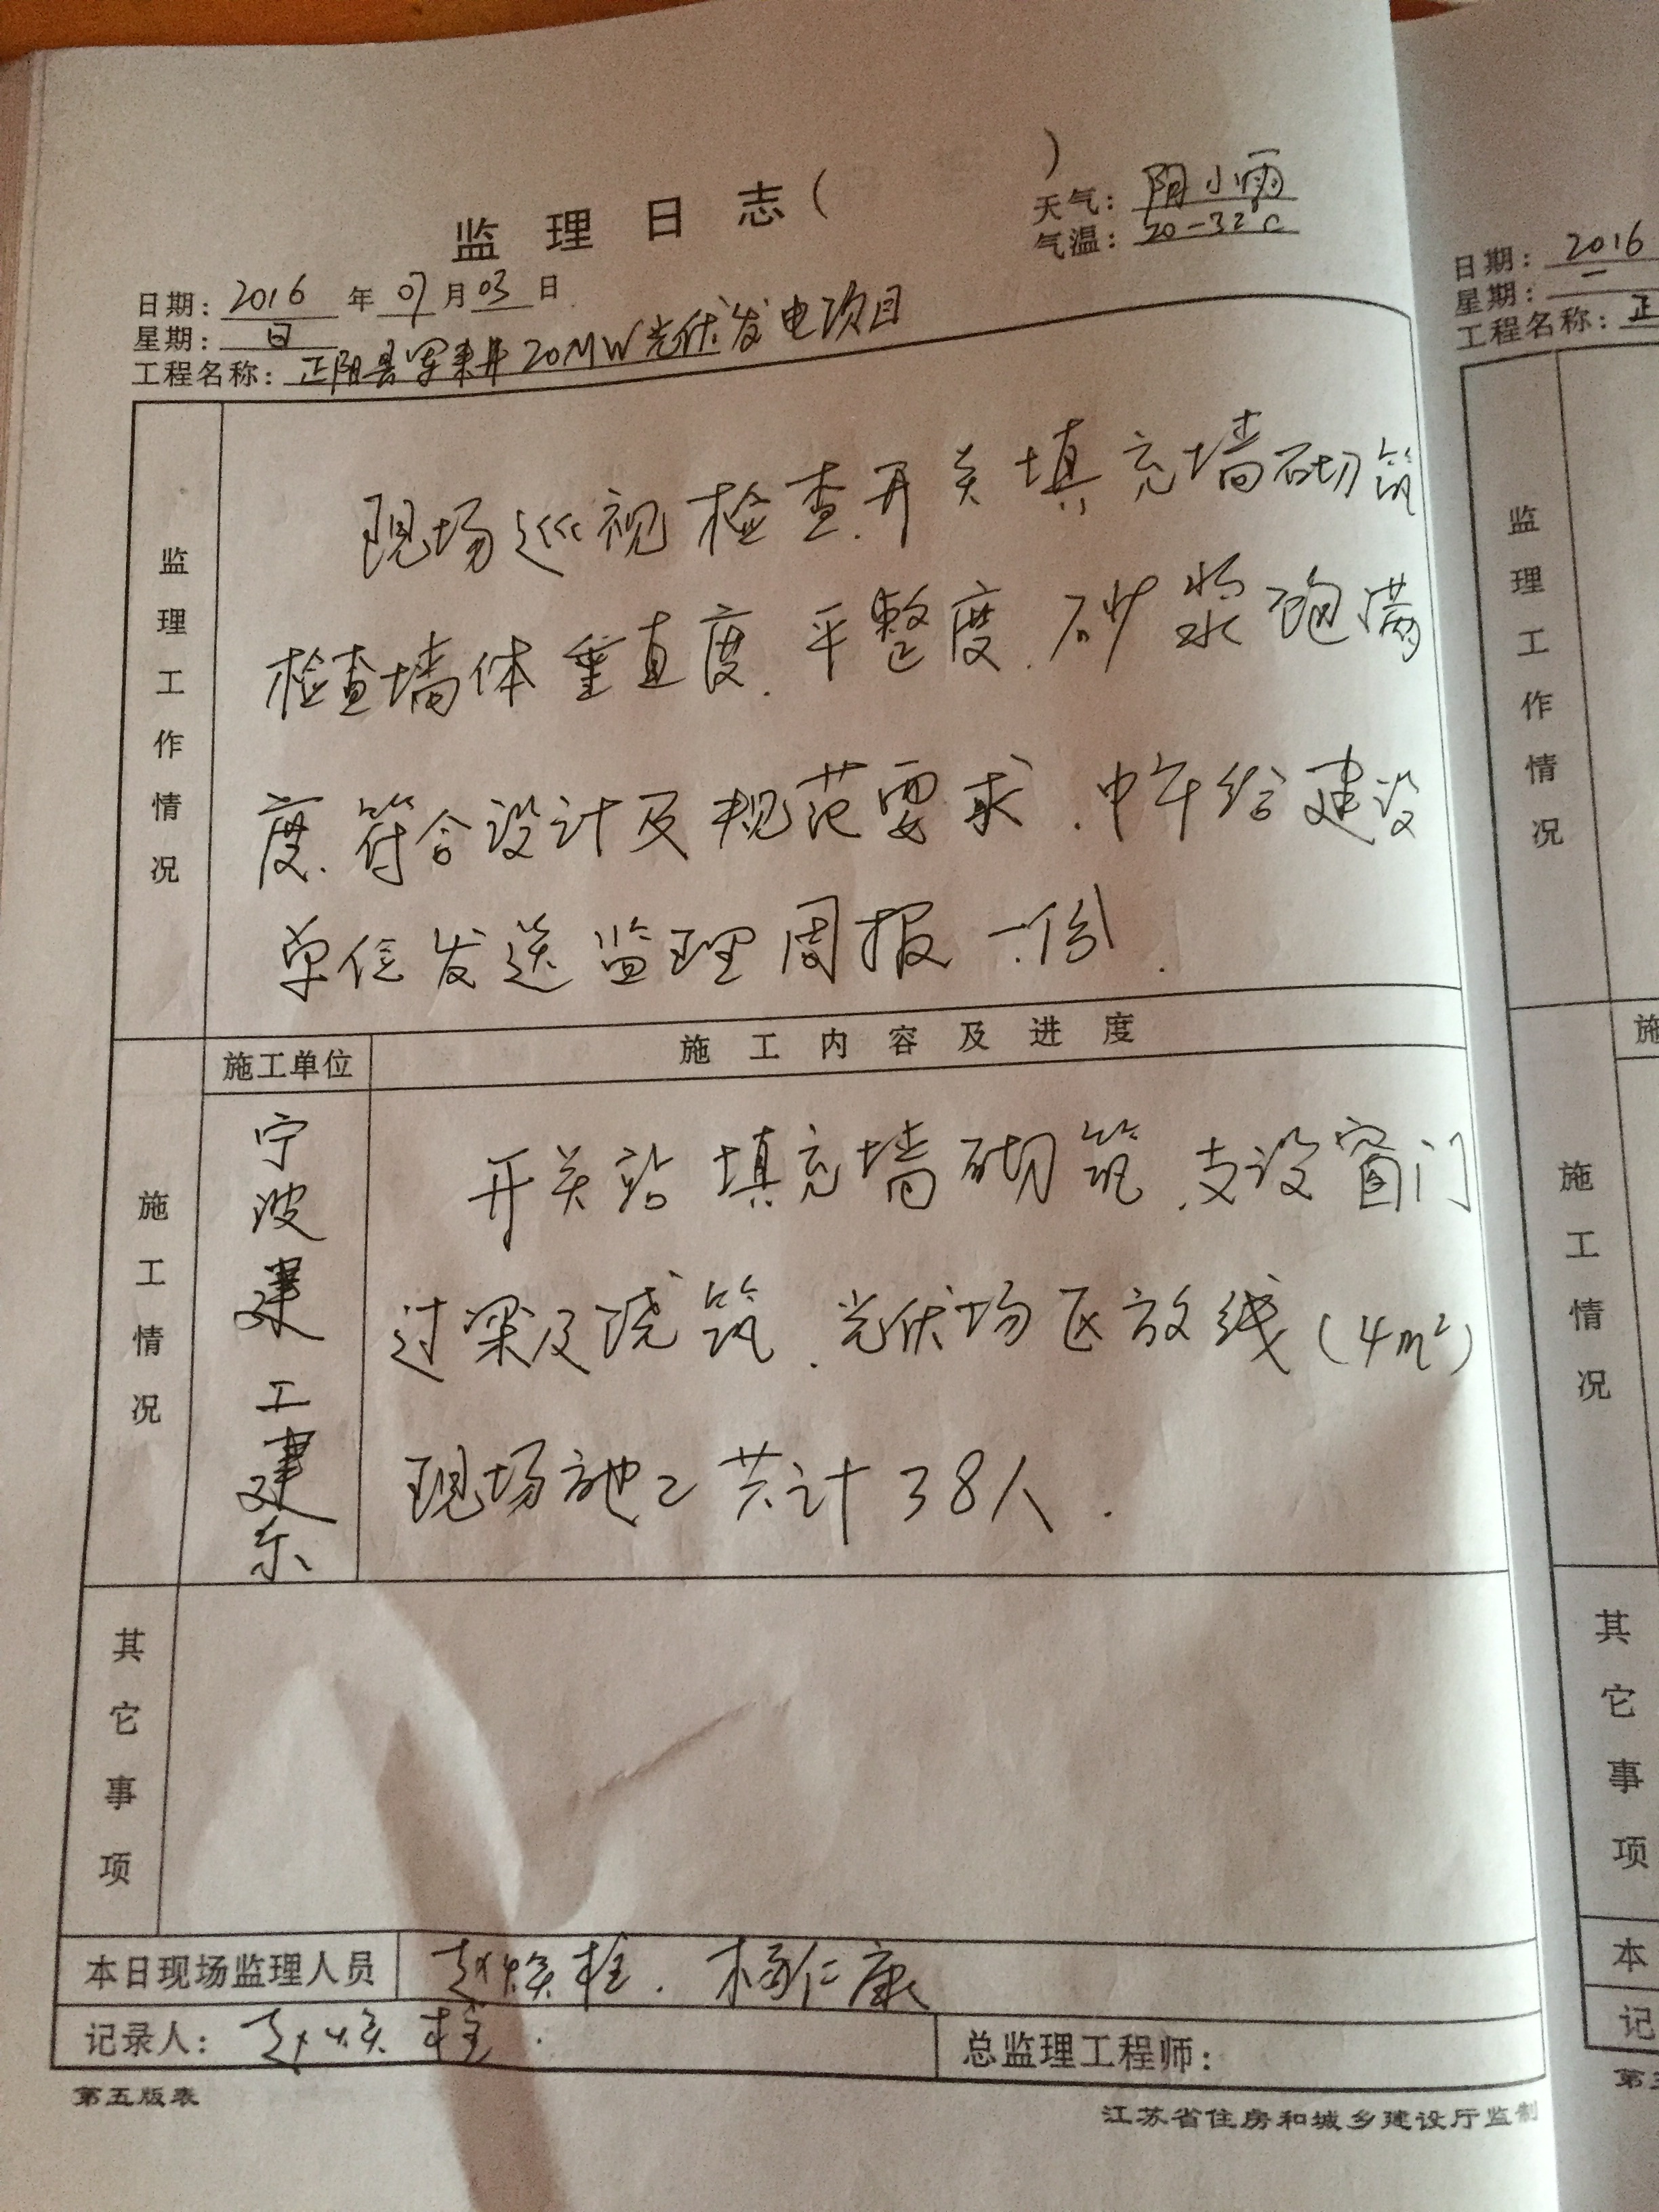 监理日志( )
天气：阴小雨
气温：20-32℃
日期：2016年07月03日
星期：日
工程名称：正阳县 20MW光伏发电项目
监理工作情况
现场巡视检查.开关填充墙砌筑
检查墙体垂直度.平整度.砂浆砲满
度.符合设计及规范要求.中午给建设
单位发送监理周报一份.
施工情况
施工单位
施工内容及进度
宁波建工建乐
开关站填充墙砌筑.支设窗门
过梁及浇筑.光伏场区放线(4m²)
现场施工共计38人.
其它事项
本日现场监理人员 赵焕柱.杨仁康
记录人：赵焕柱.
总监理工程师：
第五版表
江苏省住房和城乡建设厅监制
日期：2016
星期：一
工程名称：正
监理工作情况
施
施工情况
其它事项
本
记
第五